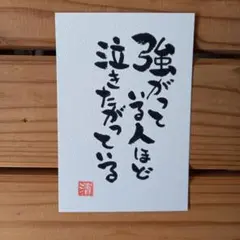 強がって
いる人ほど
泣きたがっ
ている